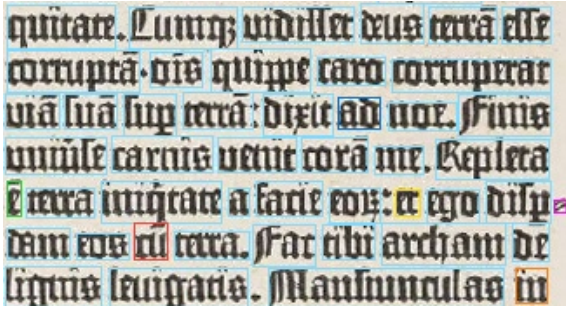 quitate. Cumq; vidisset deus terrā esse
corruptā· oīs quippe caro corruperat
viā suā suꝑ terrā: dixit ad noe. Finis
univ̄se carnis venit corā me. Repleta
ē terra iniq̄tate a facie eoꝝ: et ego disꝑ
dam eos cū terra. Fac tibi archam de
lignis levigatis. Mansiunculas in